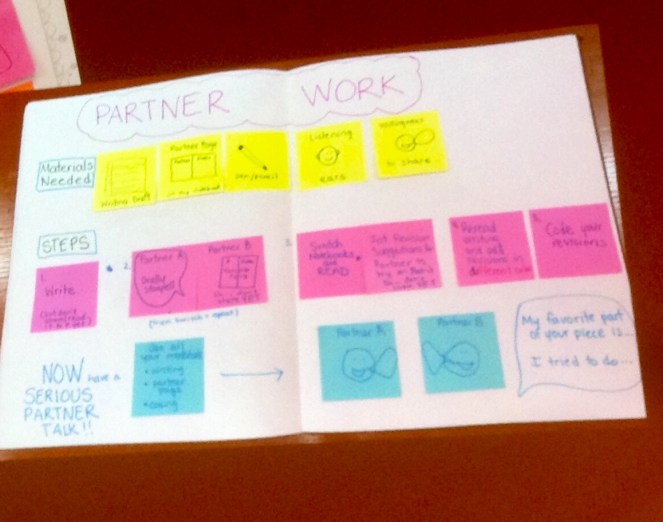 PARTNER WORK
Materials
Needed
Writing Draft
Partner Page
in my notebook
pen/pencil
Listening
ears
willingness
to share
STEPS
1.
Write
2.
Partner A
orally
storytell
Partner B
(then switch + repeat)
3.
Switch
Notebooks
and
READ
Jot Revision
Suggestions
Partner to
4.
Reread
writing
and add
revisions in
different color
5.
Code your
revisions
NOW have a
SERIOUS
PARTNER
TALK!!
Use all
your materials
• writing
• partner
page
• coding
Partner A
Partner B
My favorite part
of your piece is...
I tried to do...